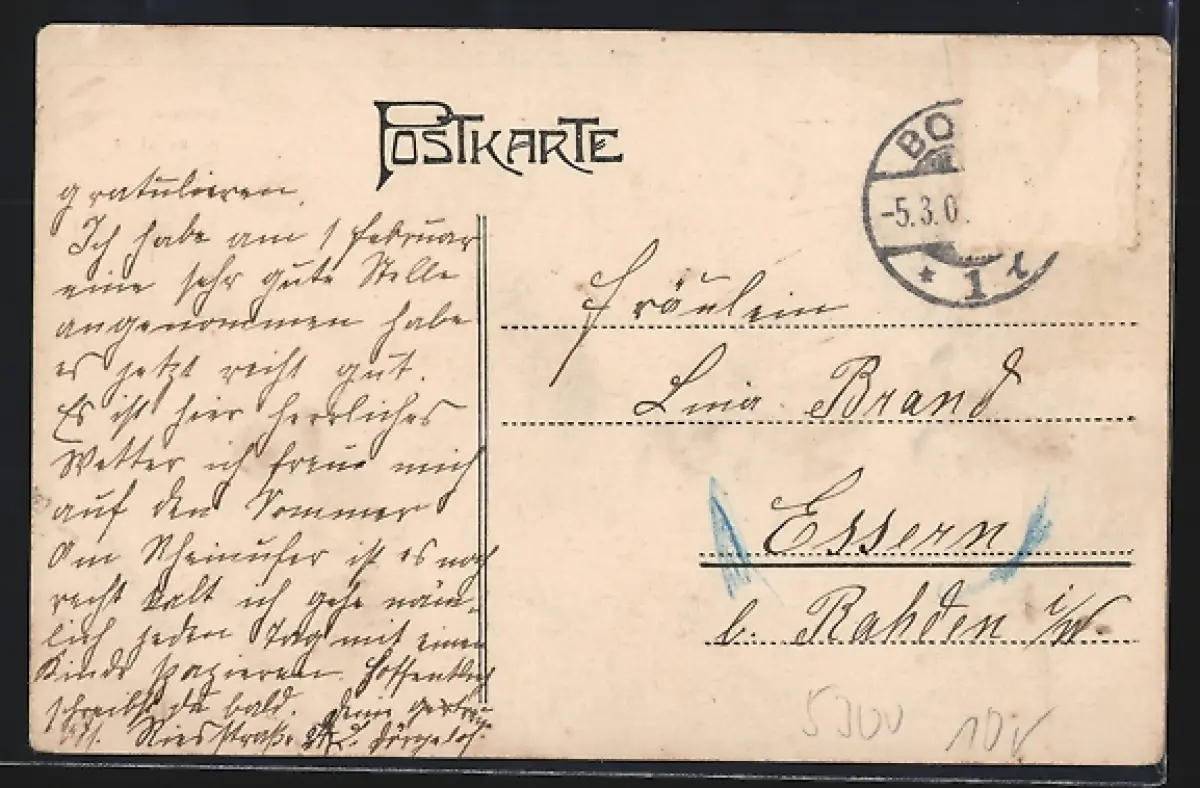 POSTKARTE
gratulieren.
Ich habe am 1 Februar
eine sehr gute Stelle
angenommen habe
es jetzt recht gut.
Es ist hier herrliches
Wetter ich freue mich
auf den Sommer
Am Rheinufer ist es noch
recht kalt ich gehe näm-
lich jeden Tag mit einem
Kinde spazieren. Hoffentlich
schreibst du bald. Deine
BO
-5.3.0
* 1
Fräulein
Lina Brand
Essern
b. Rahden i/W.
5300
10